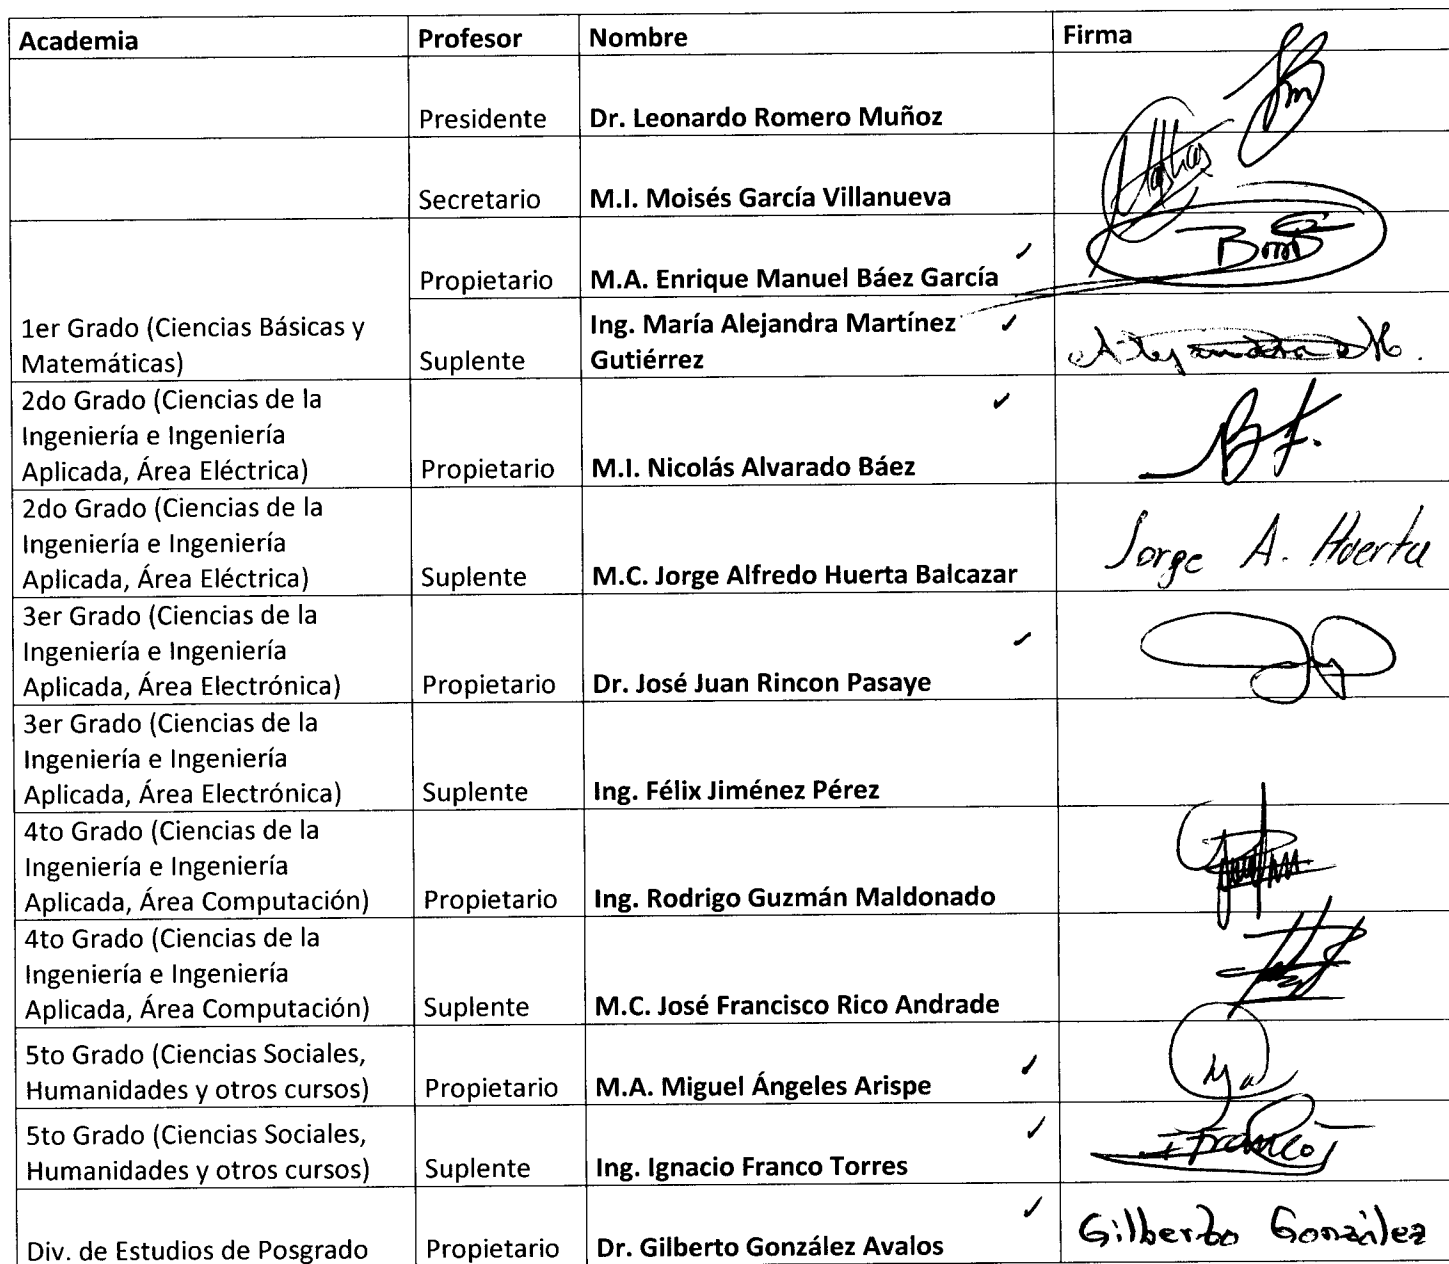 Academia Profesor Nombre Firma
Presidente Dr. Leonardo Romero Muñoz
Secretario M.I. Moisés García Villanueva
Propietario M.A. Enrique Manuel Báez García ✓
1er Grado (Ciencias Básicas y
Matemáticas)
Suplente
Ing. María Alejandra Martínez ✓
Gutiérrez
Alejandra M.
2do Grado (Ciencias de la
Ingeniería e Ingeniería
Aplicada, Área Eléctrica)
Propietario M.I. Nicolás Alvarado Báez ✓
2do Grado (Ciencias de la
Ingeniería e Ingeniería
Aplicada, Área Eléctrica)
Suplente M.C. Jorge Alfredo Huerta Balcazar
Jorge A. Huerta
3er Grado (Ciencias de la
Ingeniería e Ingeniería
Aplicada, Área Electrónica)
Propietario Dr. José Juan Rincon Pasaye ✓
3er Grado (Ciencias de la
Ingeniería e Ingeniería
Aplicada, Área Electrónica)
Suplente Ing. Félix Jiménez Pérez
4to Grado (Ciencias de la
Ingeniería e Ingeniería
Aplicada, Área Computación)
Propietario Ing. Rodrigo Guzmán Maldonado
4to Grado (Ciencias de la
Ingeniería e Ingeniería
Aplicada, Área Computación)
Suplente M.C. José Francisco Rico Andrade
5to Grado (Ciencias Sociales,
Humanidades y otros cursos)
Propietario M.A. Miguel Ángeles Arispe ✓
5to Grado (Ciencias Sociales,
Humanidades y otros cursos)
Suplente Ing. Ignacio Franco Torres ✓
I Franco
Div. de Estudios de Posgrado Propietario Dr. Gilberto González Avalos ✓
Gilberto González